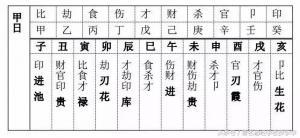 甲日
比 劫 食 伤 才 财 杀 官 卩 印
甲 乙 丙 丁 戊 己 庚 辛 壬 癸
子 丑 寅 卯 辰 巳 午 未 申 酉 戌 亥
印 财 比 劫 才 食 伤 财 杀 官 才 卩
进 官 食 刃 劫 杀 财 伤 才 刃 官 比
池 印 才 花 印 才 进 劫 卩 霞 伤 生
贵 禄 库 贵 花